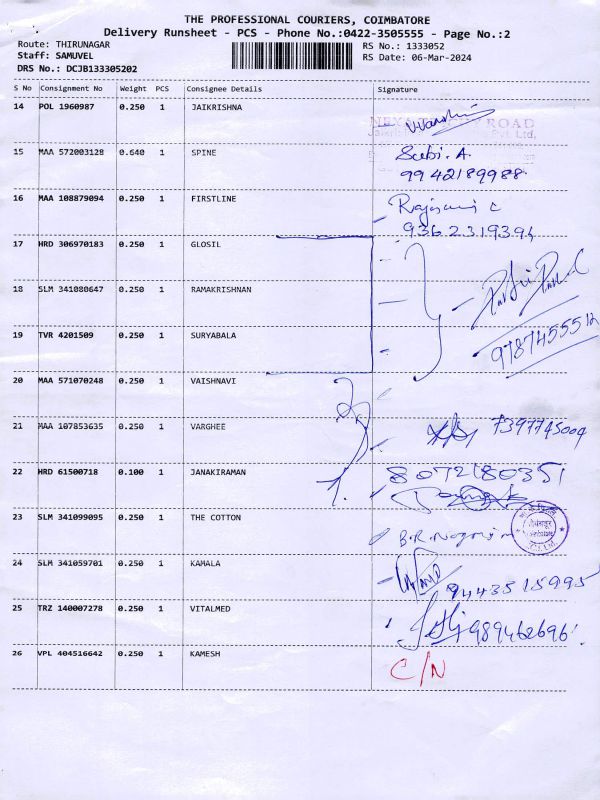 THE PROFESSIONAL COURIERS, COIMBATORE
Delivery Runsheet - PCS - Phone No.:0422-3505555 - Page No.:2
Route: THIRUNAGAR RS No.: 1333052
Staff: SAMUVEL RS Date: 06-Mar-2024
DRS No.: DCJB133305202
S No Consignment No Weight PCS Consignee Details Signature
14 POL 1960987 0.250 1 JAIKRISHNA
ROAD
Pvt. Ltd,
15 MAA 572003128 0.640 1 SPINE Subi. A
9942189988
16 MAA 108879094 0.250 1 FIRSTLINE
9362319394
17 HRD 306970183 0.250 1 GLOSIL
18 SLM 341080647 0.250 1 RAMAKRISHNAN
19 TVR 4201509 0.250 1 SURYABALA
20 MAA 571070248 0.250 1 VAISHNAVI
21 MAA 107853635 0.250 1 VARGHEE 7397745004
22 HRD 61500718 0.100 1 JANAKIRAMAN 8072180351
23 SLM 341099095 0.250 1 THE COTTON
24 SLM 341059701 0.250 1 KAMALA
9443515995
25 TRZ 140007278 0.250 1 VITALMED
26 VPL 404516642 0.250 1 KAMESH C/N